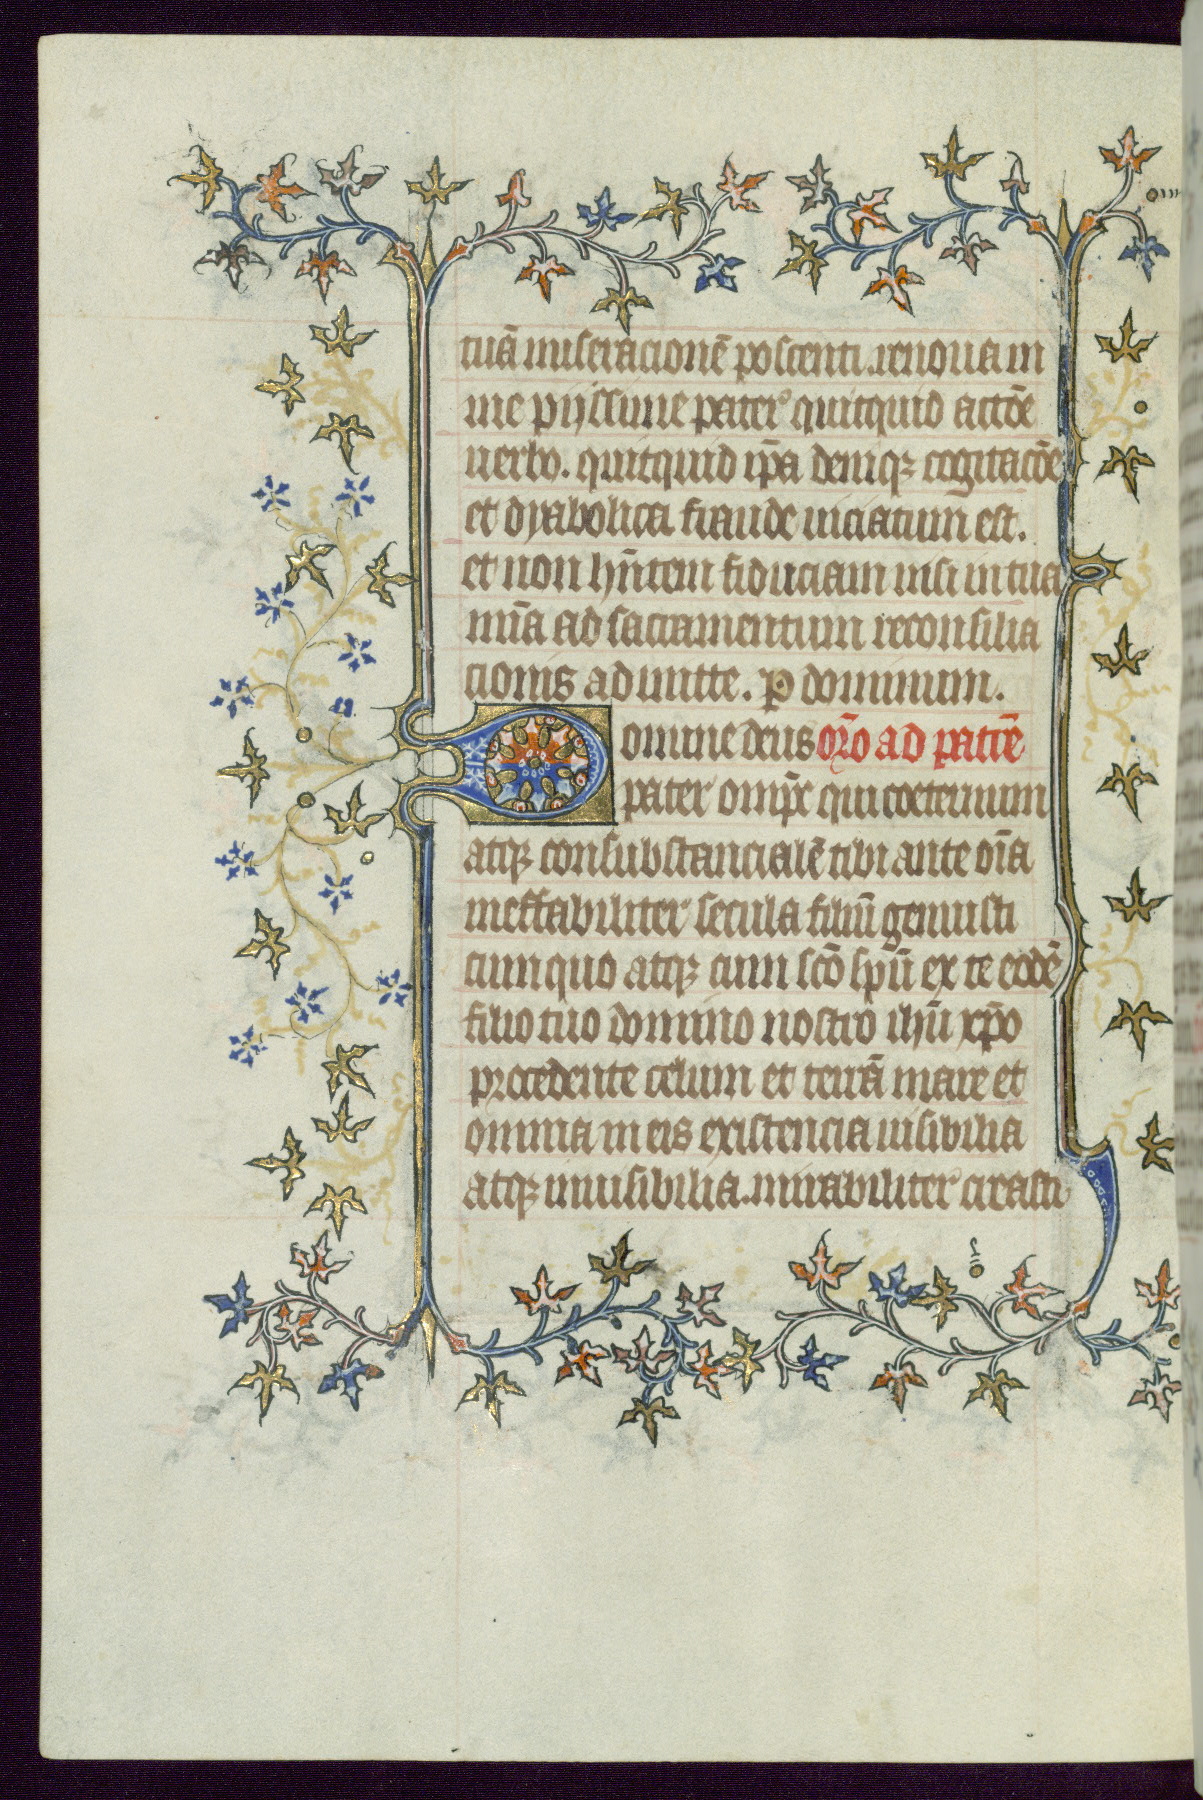 tuā miseracionē poscenti. renoua in
me pijssime pater quitquid actōe
uerbo. quitquid ip̄a deniqꝫ cogitacōe
et dyabolica fraude uiciatum est.
et non hn̄tem fiduciam nisi in tua
mīa ad sacramentum reconsilia
cionis admitte. ꝑ dominum.
Domine deus or̄o ad patrē
pater omīps qui coeternum
atqꝫ consubstancialē tibi ante oīa
ineffabiliter secula filiū genuisti
cum quo atqꝫ cum sc̄o sp̄u ex te eodē
filio tuo domino nostro ihū xp̄o
procedente celum et terrā mare et
omnia in eis existencia uisibilia
atqꝫ inuisibilia. mirabiliter creasti